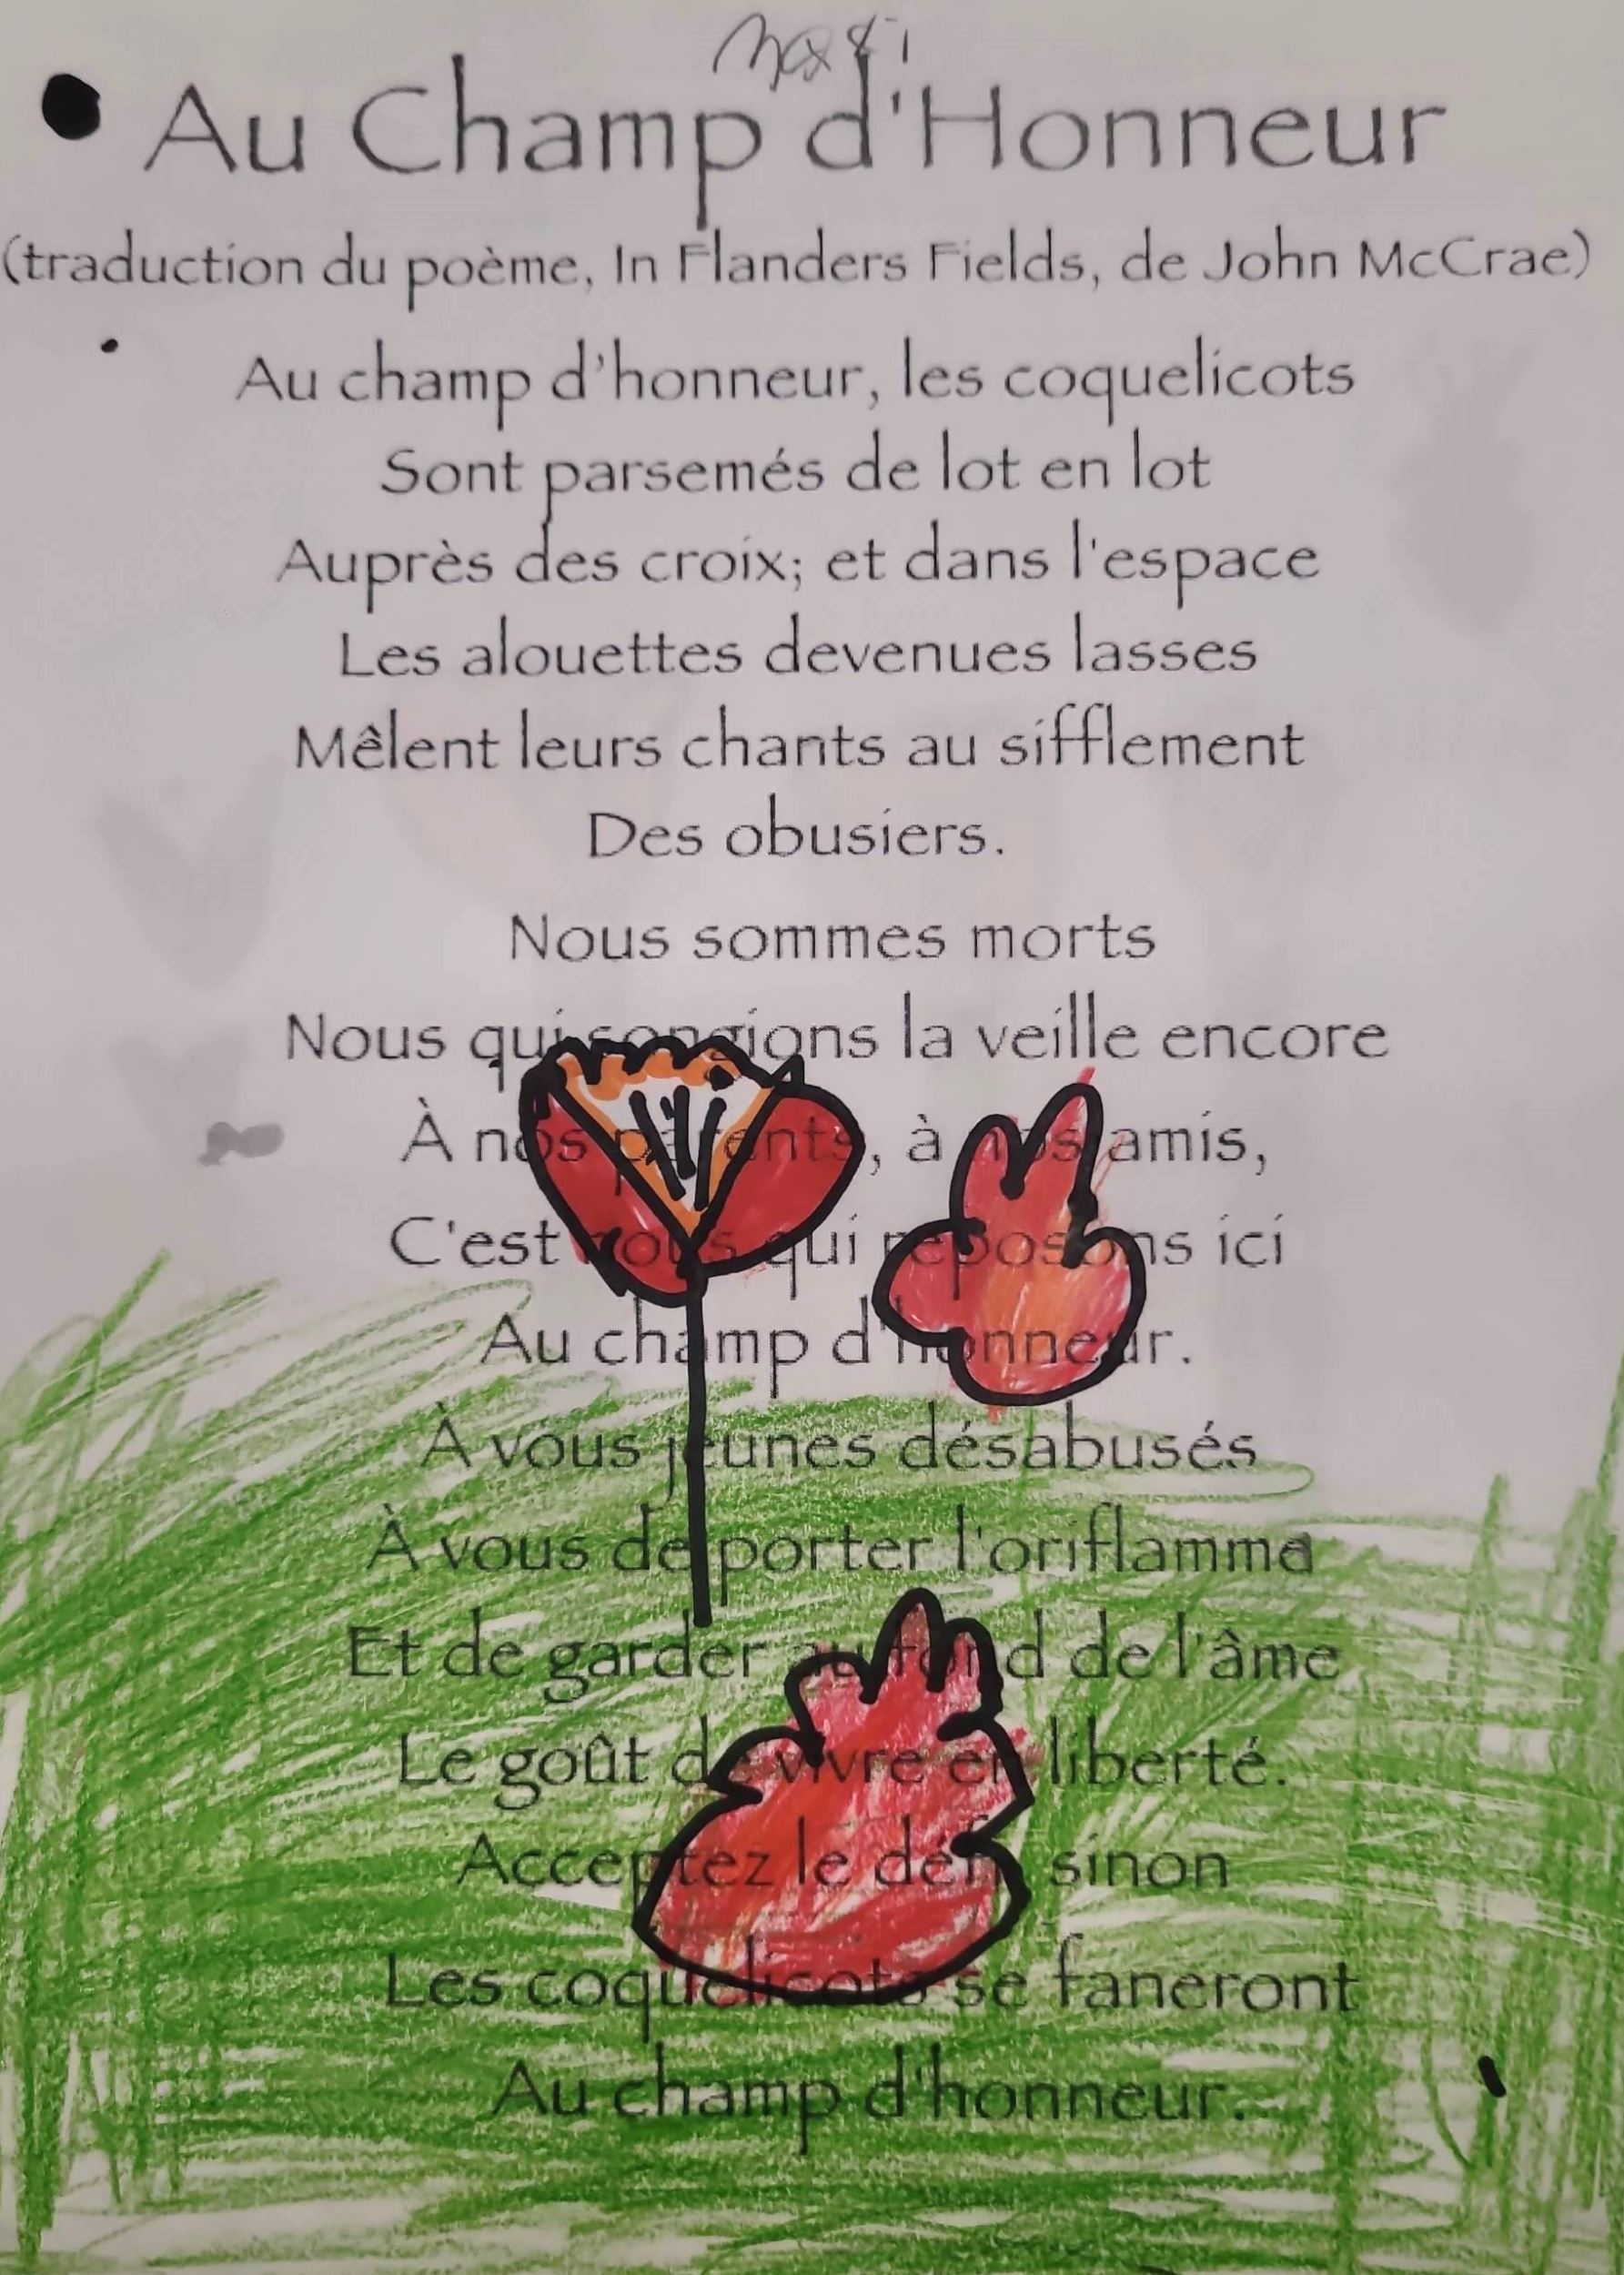 Au Champ d'Honneur
(traduction du poème, In Flanders Fields, de John McCrae)
Au champ d'honneur, les coquelicots
Sont parsemés de lot en lot
Auprès des croix; et dans l'espace
Les alouettes devenues lasses
Mêlent leurs chants au sifflement
Des obusiers.
Nous sommes morts
Nous qui songions la veille encore
À nos parents, à nos amis,
C'est nous qui reposons ici
Au champ d'honneur.
À vous jeunes désabusés
À vous de porter l'oriflamme
Et de garder au fond de l'âme
Le goût de vivre en liberté.
Acceptez le défi, sinon
Les coquelicots se faneront
Au champ d'honneur.